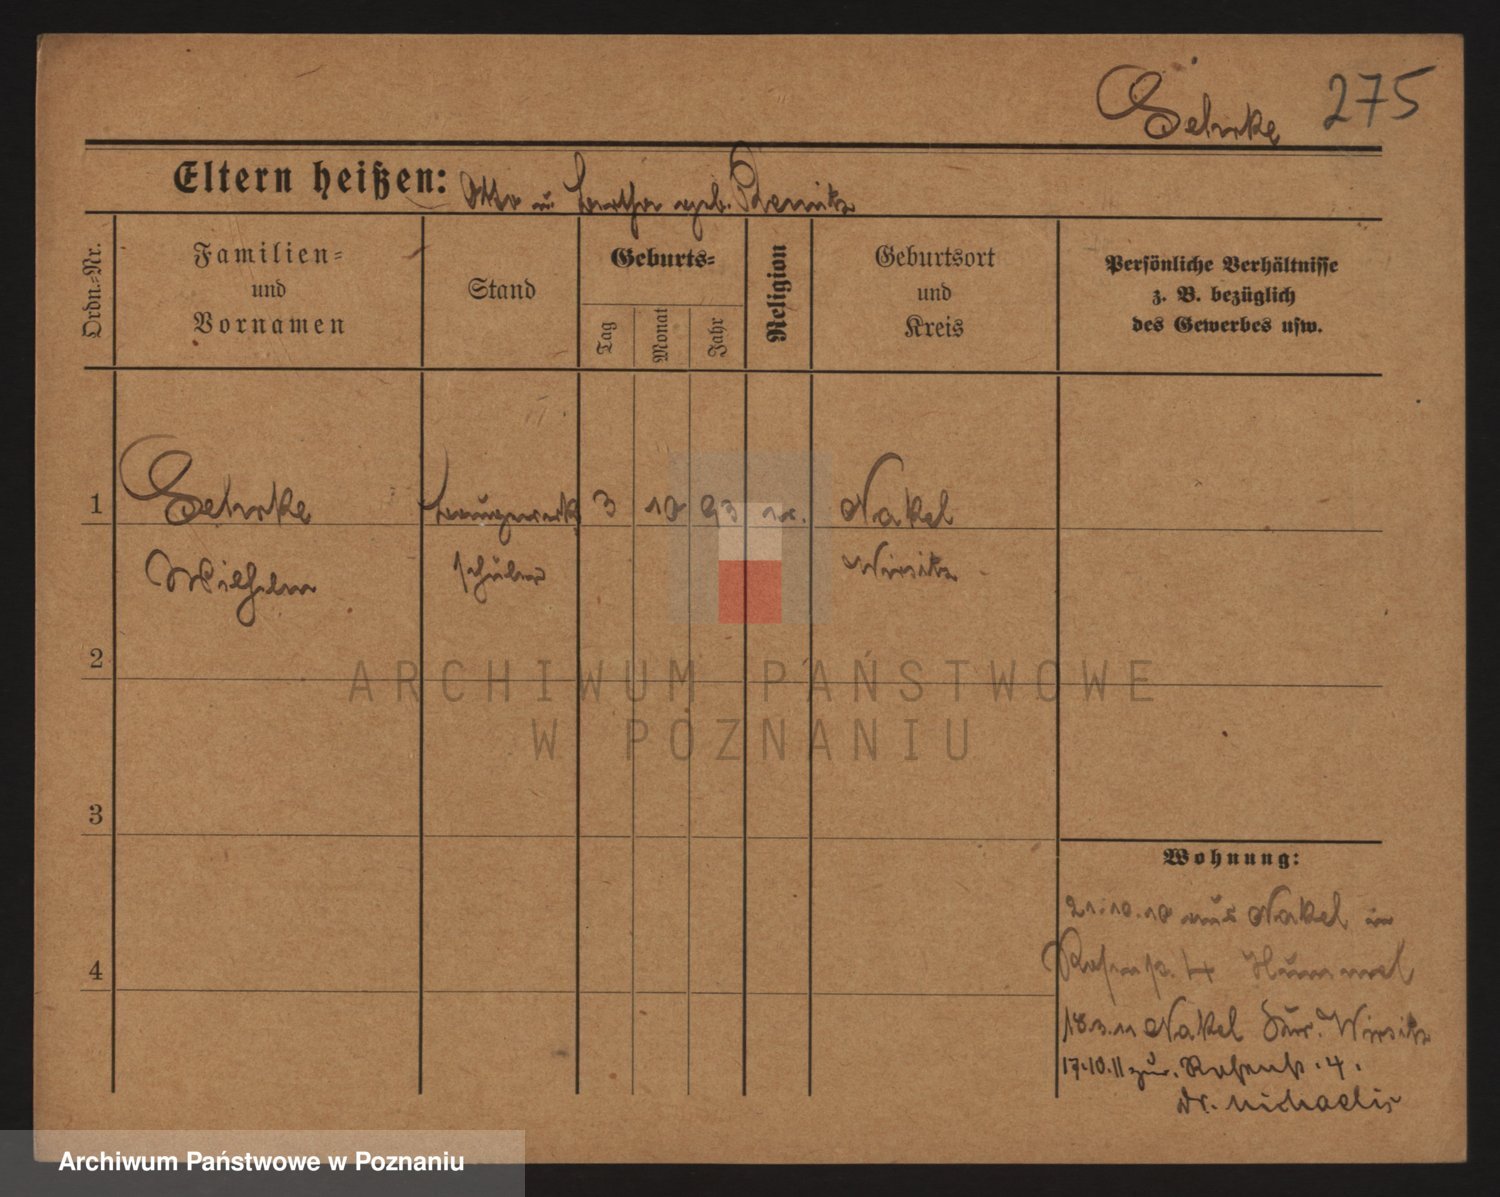 Gehrke 275
Eltern heißen: Otto u. Bertha geb. Remitz
Ordn.-Nr.
Familien-
und
Vornamen
Stand
Geburts-
Tag
Monat
Jahr
Religion
Geburtsort
und
Kreis
Persönliche Verhältnisse
z. B. bezüglich
des Gewerbes usw.
1 Gehrke Baugewerk 3 10 93 Nakel
Wilhelm schüler Wirsitz
2
3
4
ARCHIWUM PAŃSTWOWE
W POZNANIU
Wohnung:
21.10.10 aus Nakel in
4 Hummel
18.3.11 Nakel Kr. Wirsitz
17.10.11 zur. 4.
Dr. Michaelis
Archiwum Państwowe w Poznaniu